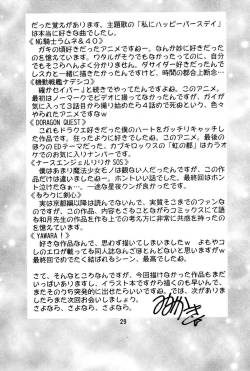 だった覚えがあります、主題歌の「私にハッピーバースデイ」は本当に好きな曲でしたし。
《NG騎士ラムネ＆40》
ガキの頃好きだったアニメですねー。なんか妙に好きだったのに憶えています。ワタルがそうでもなかったってのに、自分でもそこらへんよく分りません。ダサイダー好きだったんでレスカと一緒に描きたかったんですけど、時間の都合上断念…
《機動戦艦ナデシコ》
確かセイバーと、前後して放映されていた、このアニメ。最初はノーマークでビデオに撮ってなかったんですが、ガイが気に入って3話目から撮り始めたら4話めで死ぬという、色々やられたアニメですなー
《DORAGON QUEST》
これもドラクエ好きだった僕のハートをガッチリキャッチした作品です。だったように好きでした、このアニメ。最終回の時のEDテーマだった、カブキロックスの「虹の都」はカラオケでのお気に入りナンバーです。
《ナースエンジェルりりかSOS》
僕はあまり魔法少女モノは観ない人だったんですが、この作品だけは違いましたねー。いいお話でした、最終回はもーホント泣けたなぁ…。一途な星夜クンが良かったです。
《るろうに剣心》
実は京都編以降は読んでないんで、実質そこまでのファンなのですが、この作品、内容もさることながらコミックスにて語る和月先生の作品を作る上での考え方に非常に共感を持ったのを憶えています。
《YAWARA！》
好きな作品なんで、思わず描いてしまいましたw よもやコレのエロが載ってる同人誌なんざほとんどないと思いますがw 最終回でのめでたく結ばれるシーン、最高でしたねー。
さて、そんなところなんですが、今回描けなかった作品もまだいっぱいありますし、イラスト本ですから描くのも早いんで、またそのウチ突発的に出せたらいいですねー。では、次がありましたらまた次回お会いしましょう。
さよなら、さよなら、さよなら。
29